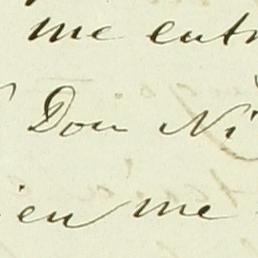 me entr
Don Ni
ien me